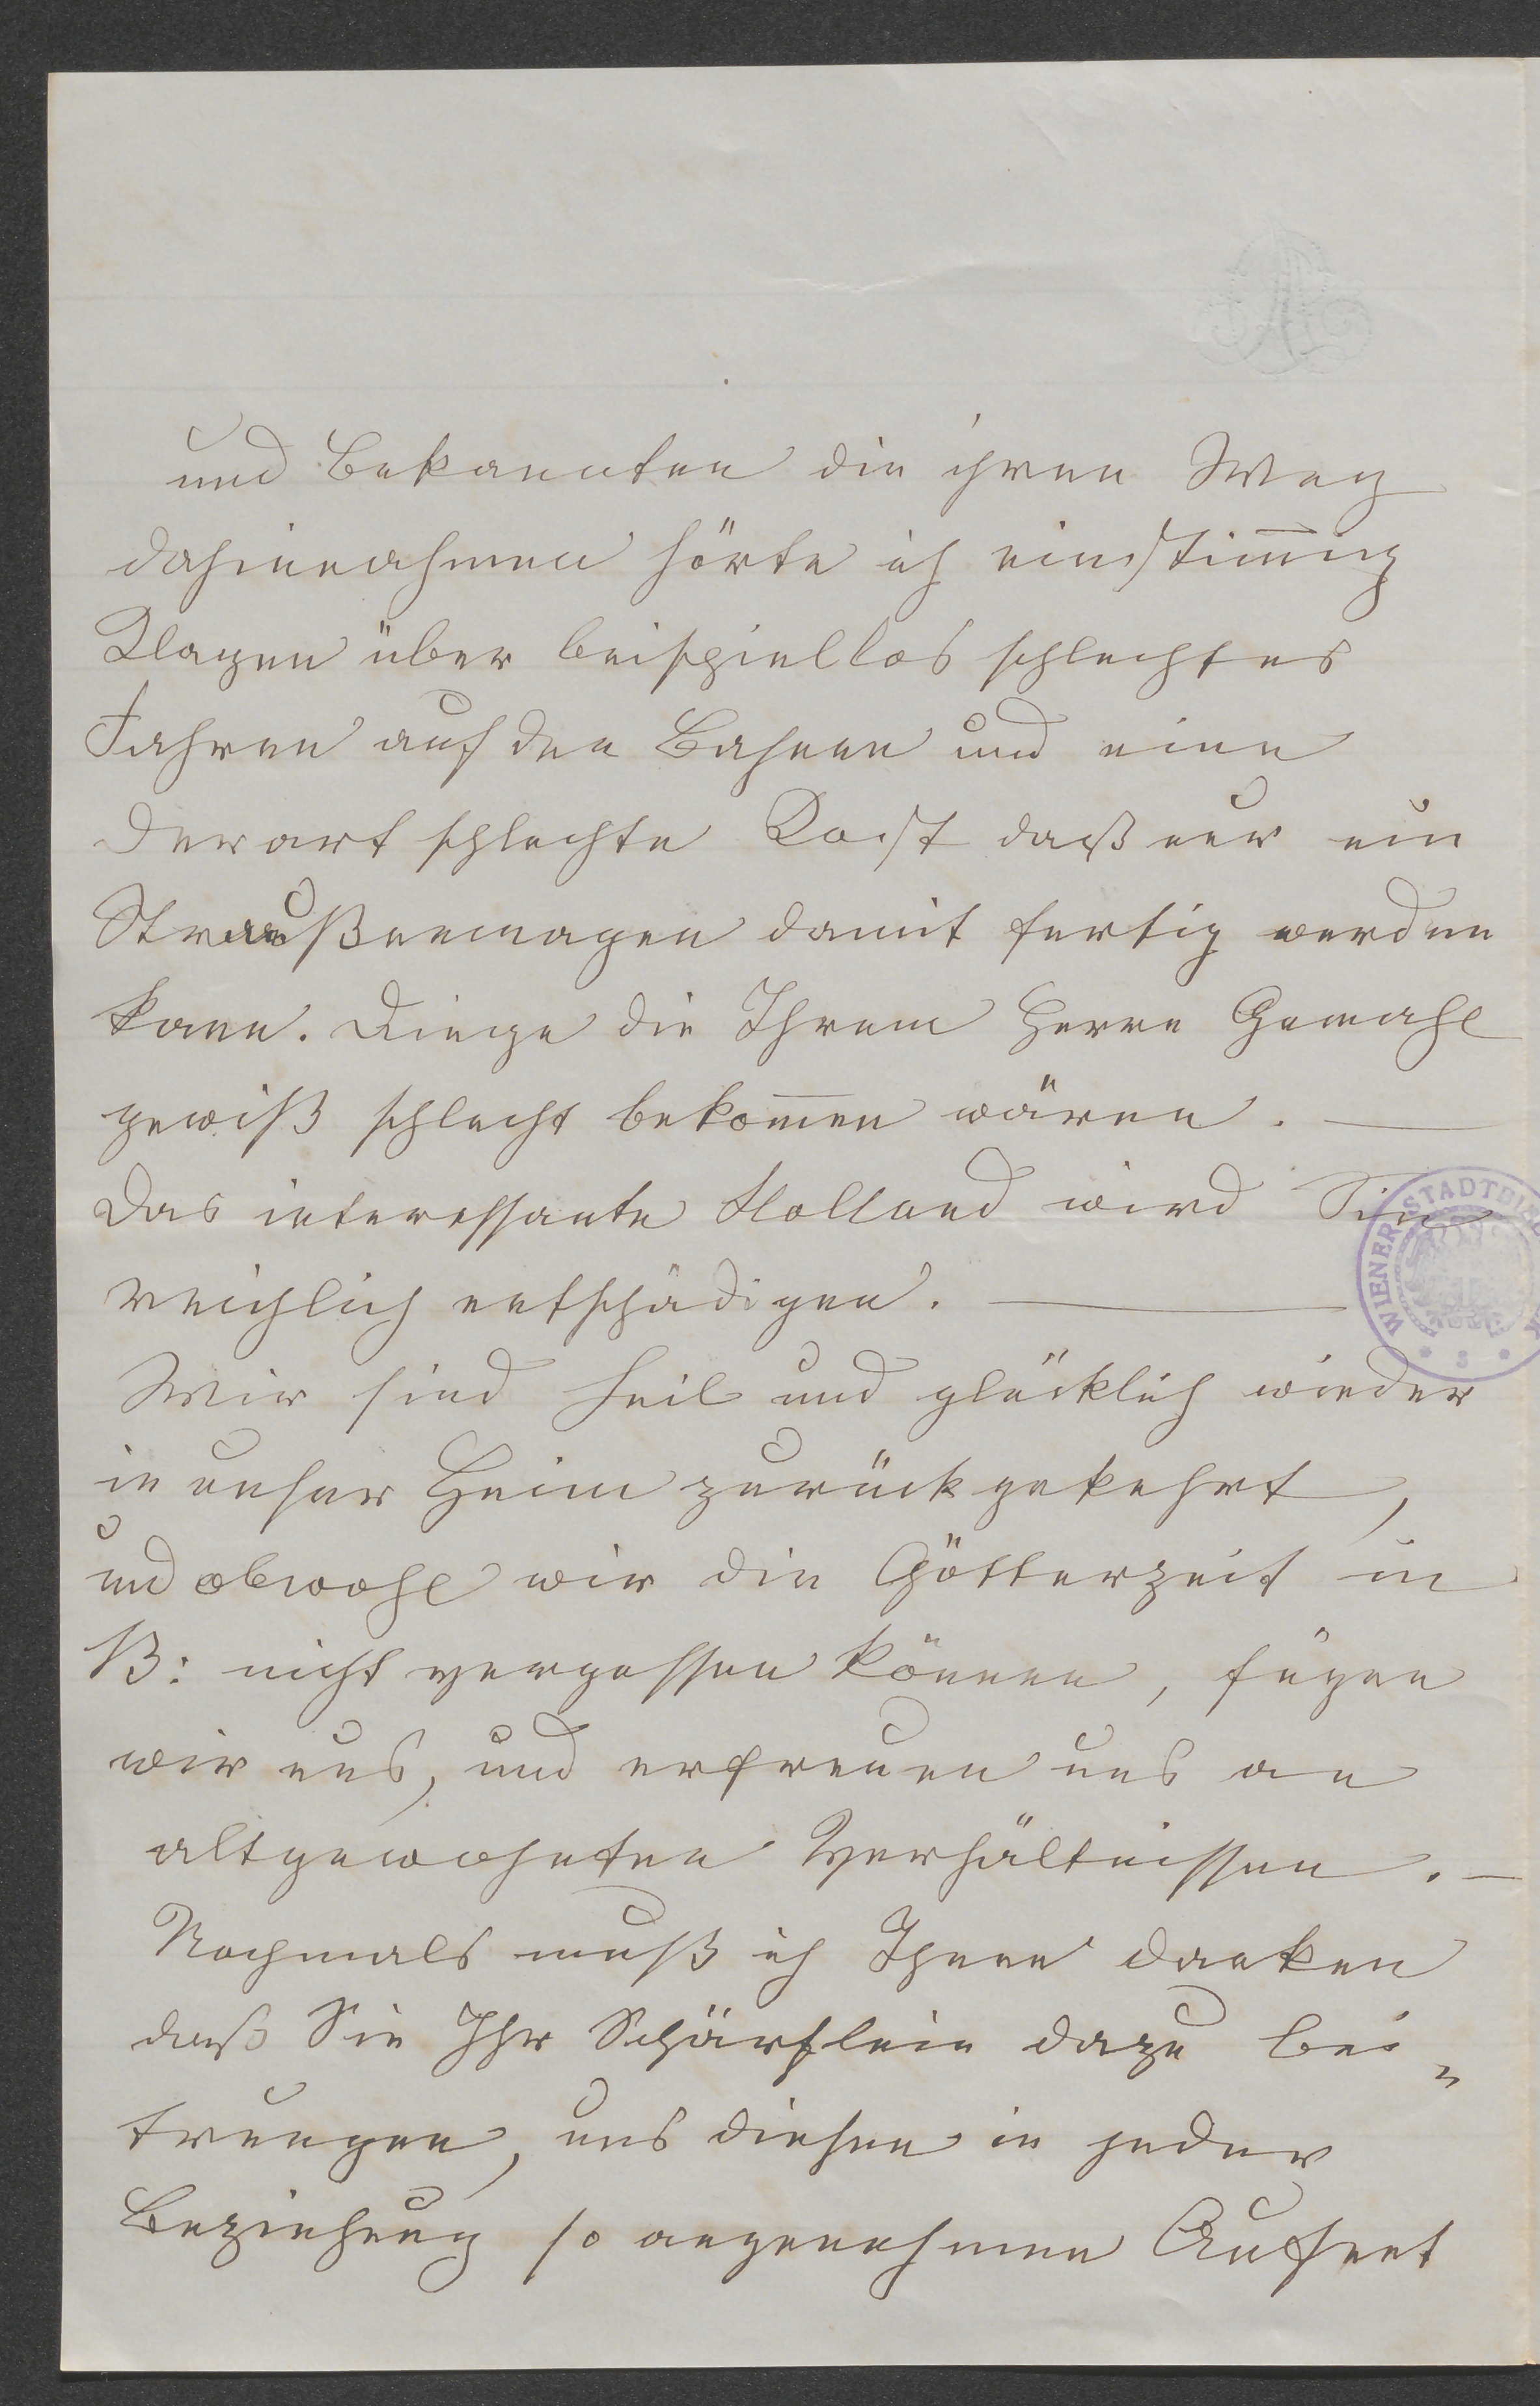 und Bekannten die ihren Weg
dahinnahmen hörte ich einstim̅ig
Klagen über beispiellos schlechtes
Fahren auf den Bahnen und eine
derart schlechte Kost daß nur ein
Straußenmagen damit fertig werden
kann. Dinge die Ihrem Herrn Gemahl
gewiß schlecht bekom̅en wären. —
Das interessante Holland wird Sie
reichlich entschädigen. —
Wir sind heil und glücklich wieder
in unser Heim zurückgekehrt,
und obwohl wir die Götterzeit in
B: nicht vergessen können, fügen
wir uns, und erfreuen uns an
altgewohnten Verhältnissen. —
Nochmals muß ich Ihnen danken
daß Sie Ihr Schärflein dazu bei„
trungen, uns diesen in jeder
Beziehung so angenehmen Aufent
WIENER STADTBI